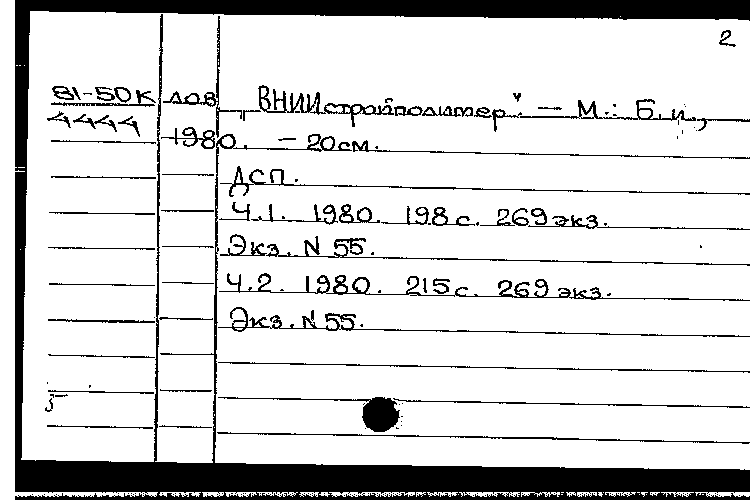 2
81-50К лов „ВНИИстройполимер“. — М.: Б.и.,
4444
1980. – 20 см.
ДСП.
Ч.1. 1980. 198 с. 269 экз.
Экз. N 55.
Ч.2. 1980. 215 с. 269 экз.
Экз. N 55.